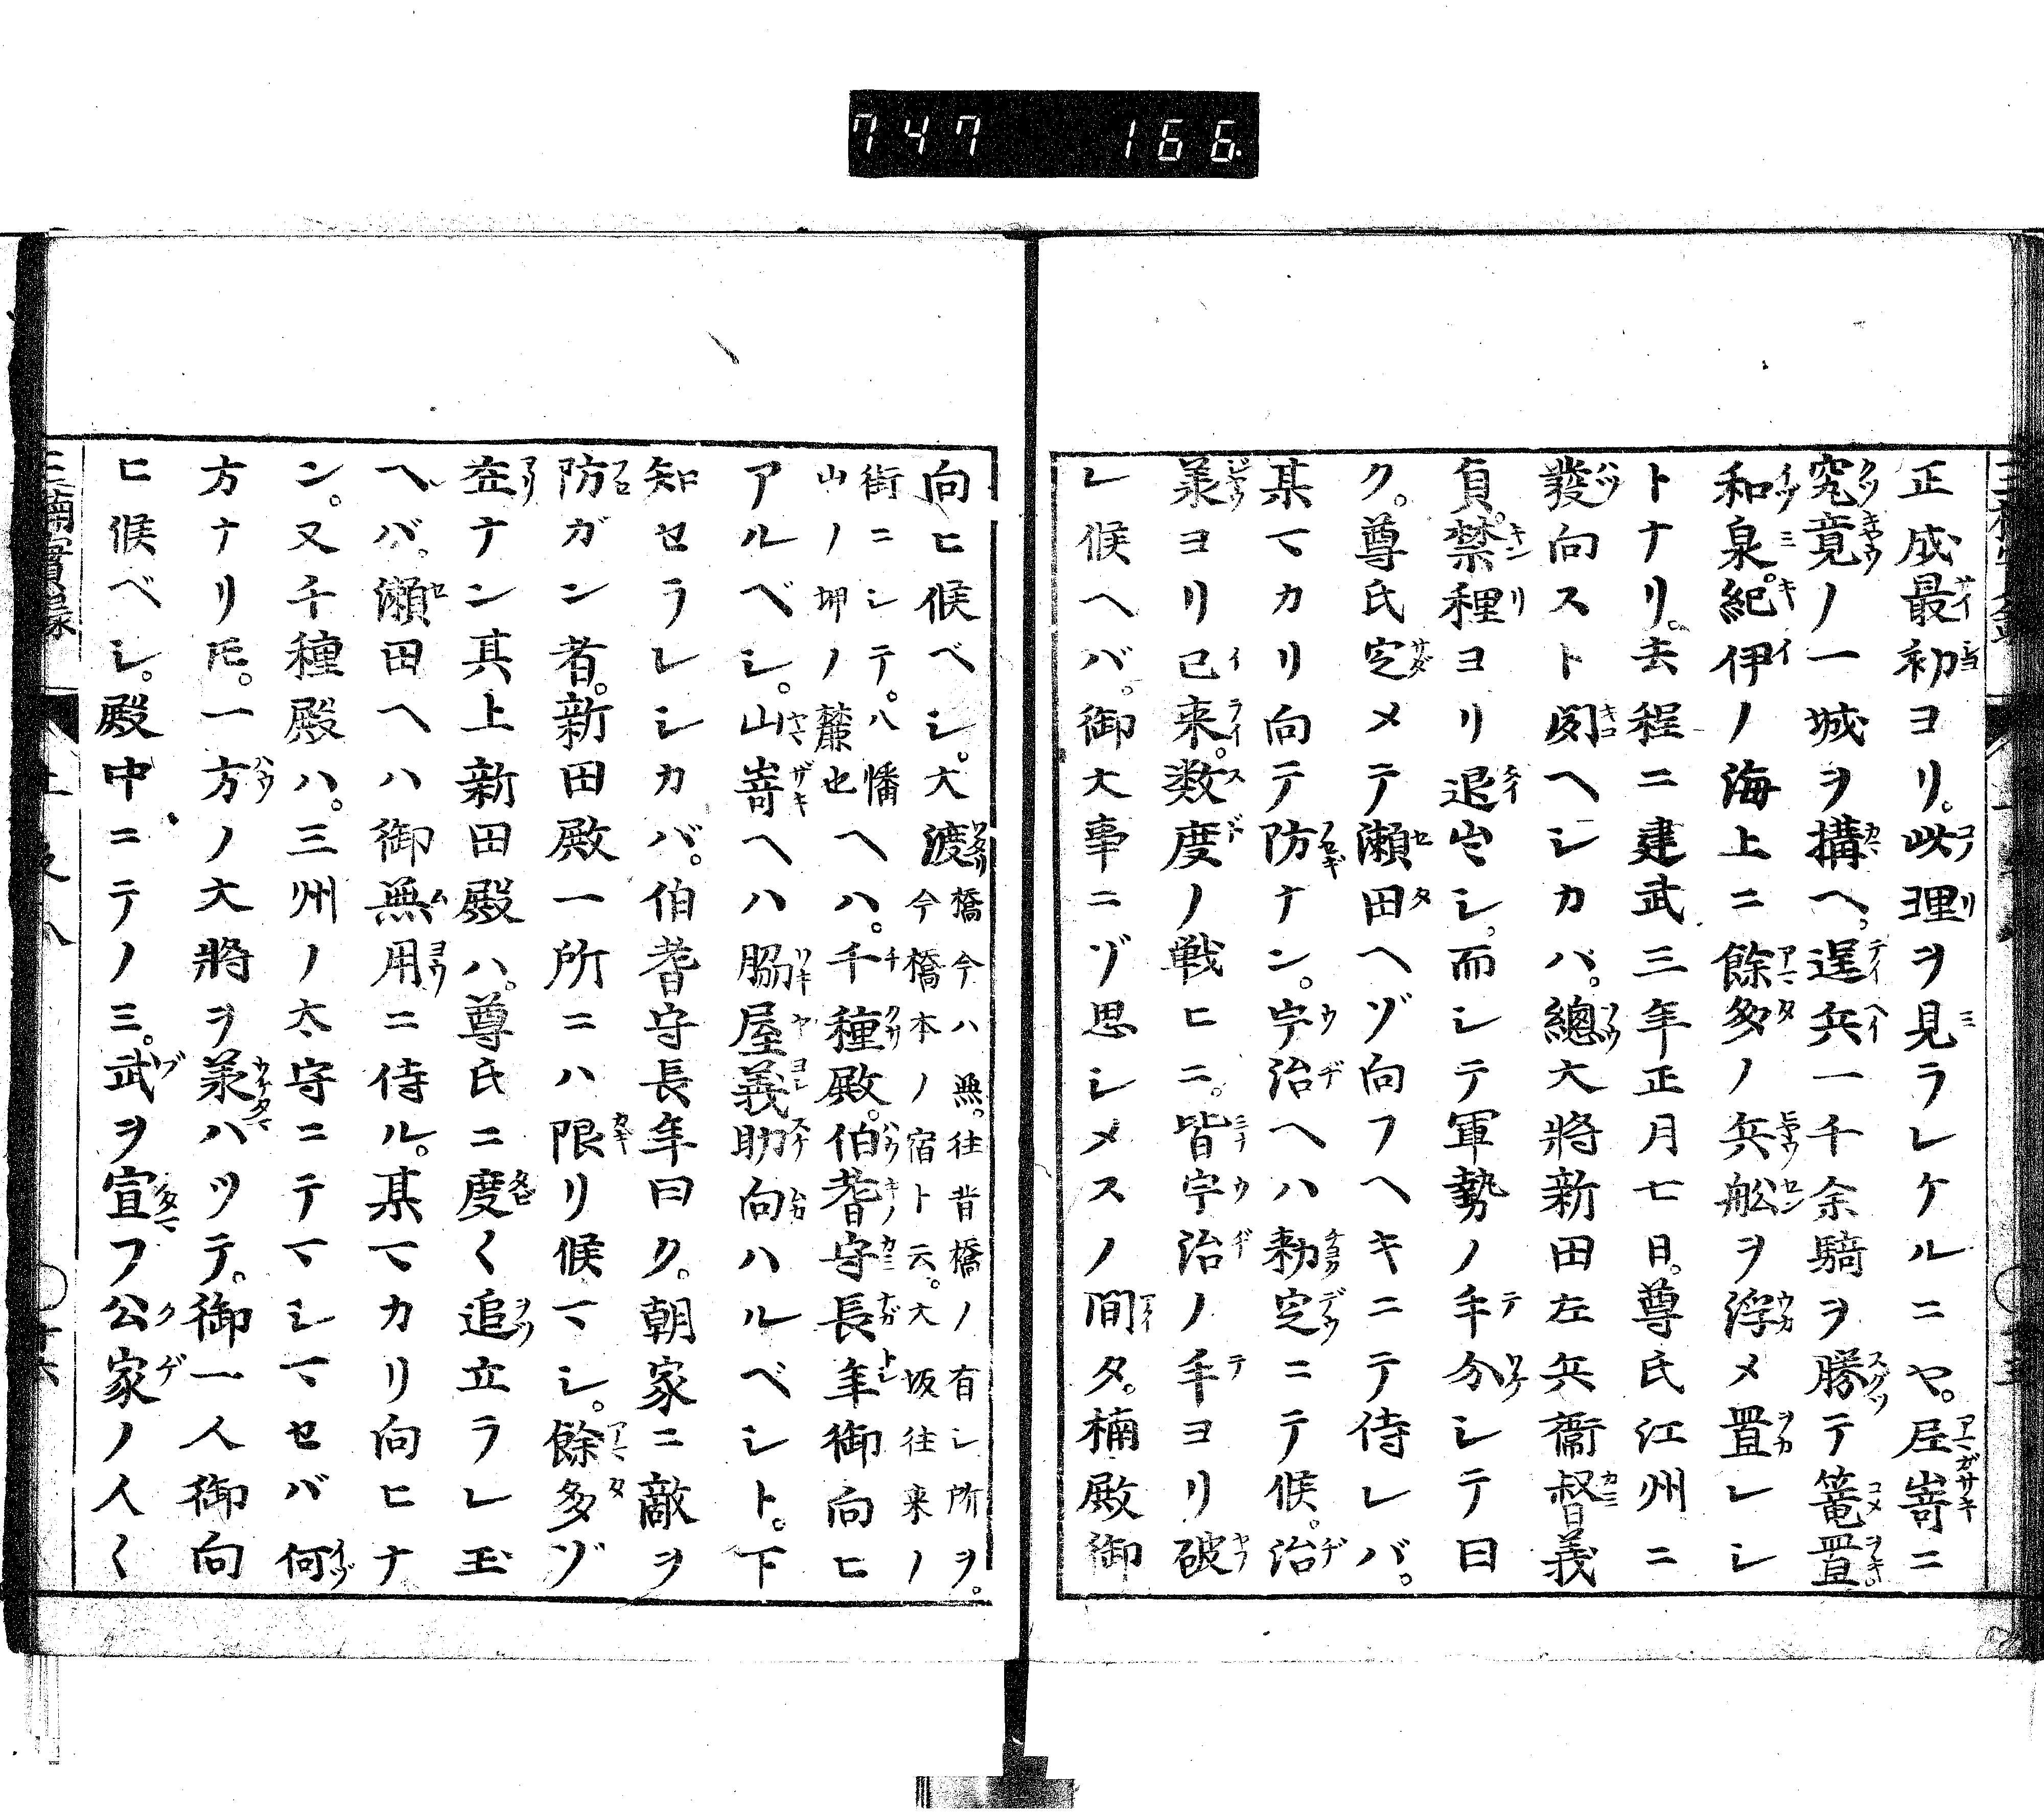 747 166
正成最初ヨリ。此理ヲ見ラレケルニヤ。尼嵜ニ
究竟ノ一城ヲ搆ヘ。逞兵一千余騎ヲ勝テ篭置。
和泉。紀伊ノ海上ニ餘多ノ兵舩ヲ浮メ置レシ
トナリ。去程ニ建武三年正月七日。尊氏江州ニ
發向スト聞ヘシカバ。總大將新田左兵衞督義
貞。禁裡ヨリ退出シ。而シテ軍勢ノ手分シテ曰
ク。尊氏定メテ瀬田ヘゾ向フヘキニテ侍レバ。
某マカリ向テ防ナン。宇治ヘハ勅定ニテ候。治
承ヨリ已来。数度ノ戦ヒニ。皆宇治ノ手ヨリ破
レ候ヘバ。御大事ニゾ思シメスノ間タ。楠殿御
向ヒ候ベシ。大渡橋今ハ無。往昔橋ノ有シ所ヲ。今橋本ノ宿ト云。大坂往来ノ
街ニシテ。八幡山ノ坤ノ麓也ヘハ。千種殿。伯耆守長年御向ヒ
アルベシ。山嵜ヘハ脇屋義助向ハルベシト。下
知セラレシカバ。伯耆守長年曰ク。朝家ニ敵ヲ
防ガン者。新田殿一所ニハ限リ候マシ。餘多ゾ
在ナン其上新田殿ハ。尊氏ニ度〱追立ラレ玉
ヘバ。瀬田ヘハ御無用ニ侍ル。某マカリ向ヒナ
ン。又千種殿ハ。三州ノ太守ニテマシマセバ何
方ナリ𪜈。一方ノ大將ヲ承ハツテ。御一人御向
ヒ候ベシ。殿中ニテノミ。武ヲ宣フ公家ノ人〱
三楠實録